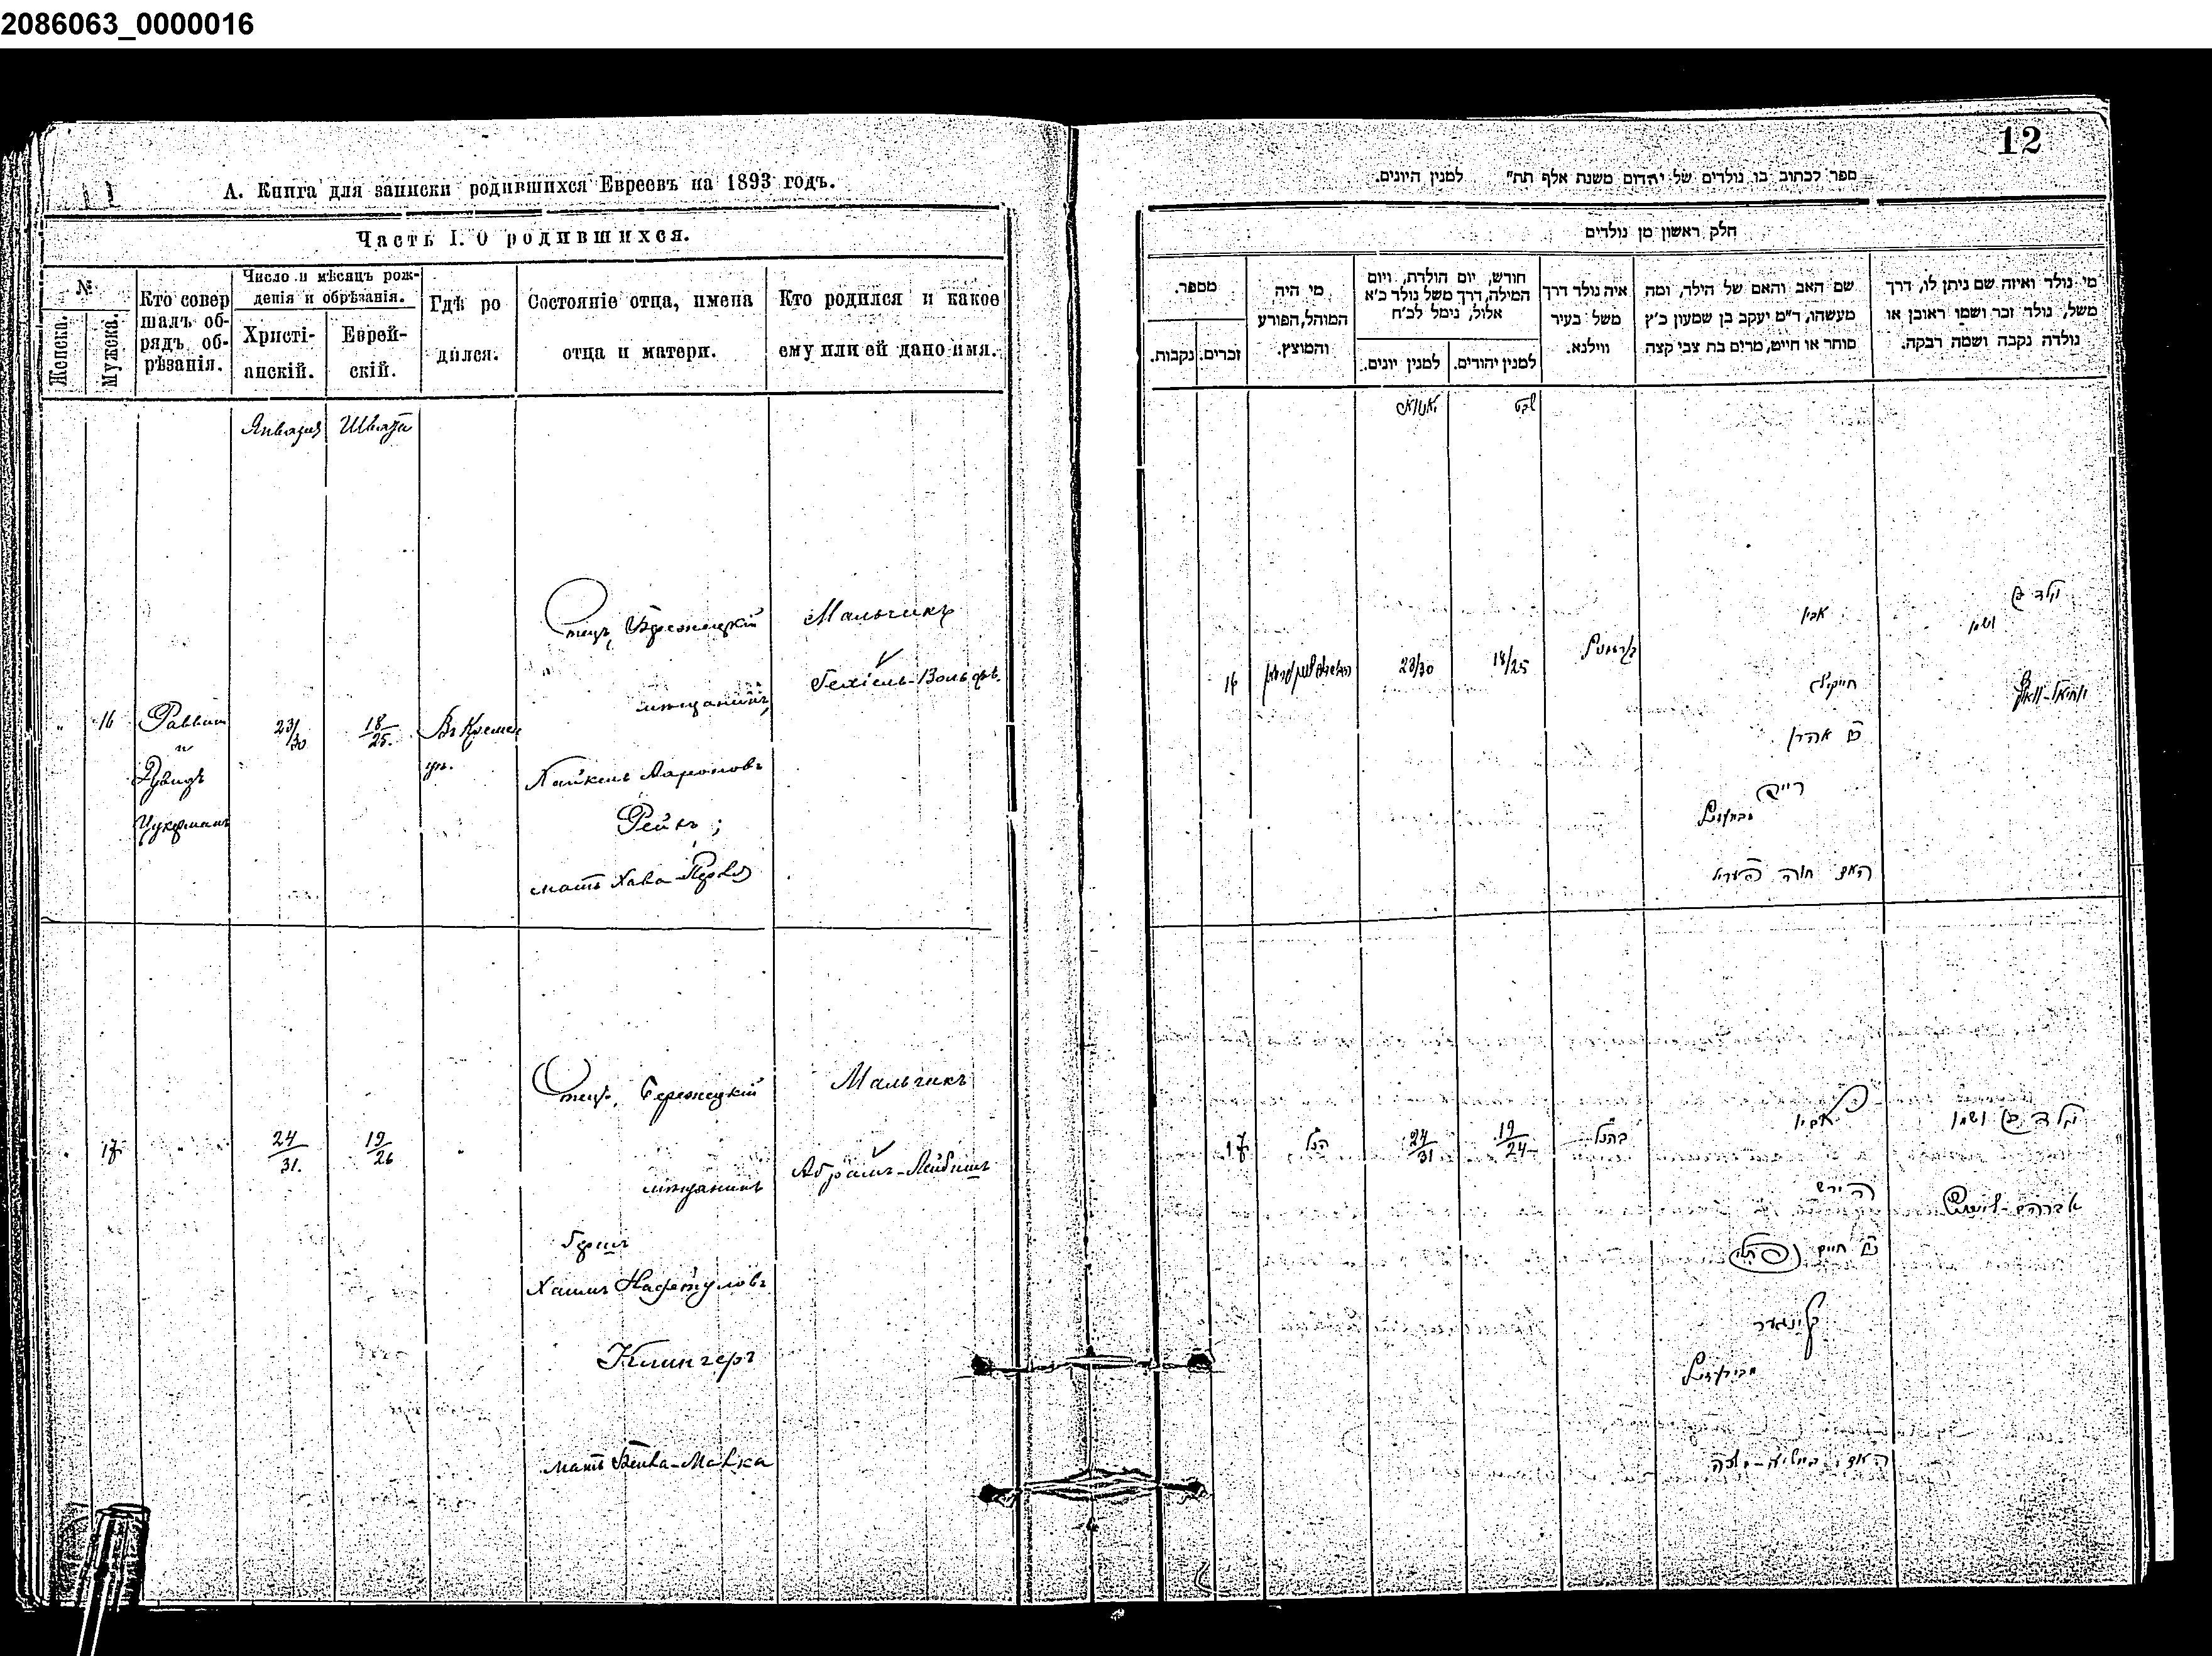 2086063_0000016
А. Книга для записки родившихся Евреевъ на 1893 годъ.
Часть I. О родившихся.
№
Женска.
Мужска.
Кто совер
шалъ об-
рядъ об-
рѣзанія.
Число и мѣсяцъ рож-
денія и обрѣзанія.
Христі-
анскій.
Еврей-
скій.
Гдѣ ро
дился.
Состояніе отца, имена
отца и матери.
Кто родился и какое
ему или ей дано имя.
Января
Швата
16
Раввин
и
Цукерманъ
23/30
18/25.
Въ Кремен
цѣ.
Отецъ,
мѣщанинъ,
Хайкель Ароновъ
Рейкъ;
мать Хава-Перля
Мальчикъ
Гехіель-Вольфъ.
17
24/31.
19/26
Отецъ, Бережецкій
мѣщанинъ
Гершъ
Хаимъ Нафтуловъ
Клингеръ
мать Бейла-Малка
Мальчикъ
Абрамъ-Лейбишъ
12
ספר לכתוב בו נולדים של יהדום משנת אלף תת" למנין היונים.
חלק ראשון מן נולדים
מי נולד ואיזה שם ניתן לו, דרך
משל, נולד זכר ושמו ראובן או
נולדה נקבה ושמה רבקה.
שם האב והאם של הילד, ומה
מעשהו, ד"מ יעקב בן שמעון כ"ץ
סוחר או חייט, מרים בת צבי קצה
איה נולד דרך
משל בעיר
ווילנא.
חורש, יום הולדת, ויום
המילה, דרך משל נולד כ'א
אלול, נימל לכ'ח
למנין יהודים.
למנין יונים.
מי היה
המוהל, הפורע
והמוצץ.
מספר.
זכרים.
נקבות.
שבט
יאנואר
נולד בן
ושמו
יחיאל-וואלף
אביו
חייקיל
ב"ר אהרן
רייק
האם חוה פערל
18/25
23/30
16
נולד בן ושמו
אברהם-לייביש
אביו
הירש
חיים נפתלי
קלינגער
האם ביילא-מלכה
בהנ"ל
19/24
24/31
הנ"ל
17